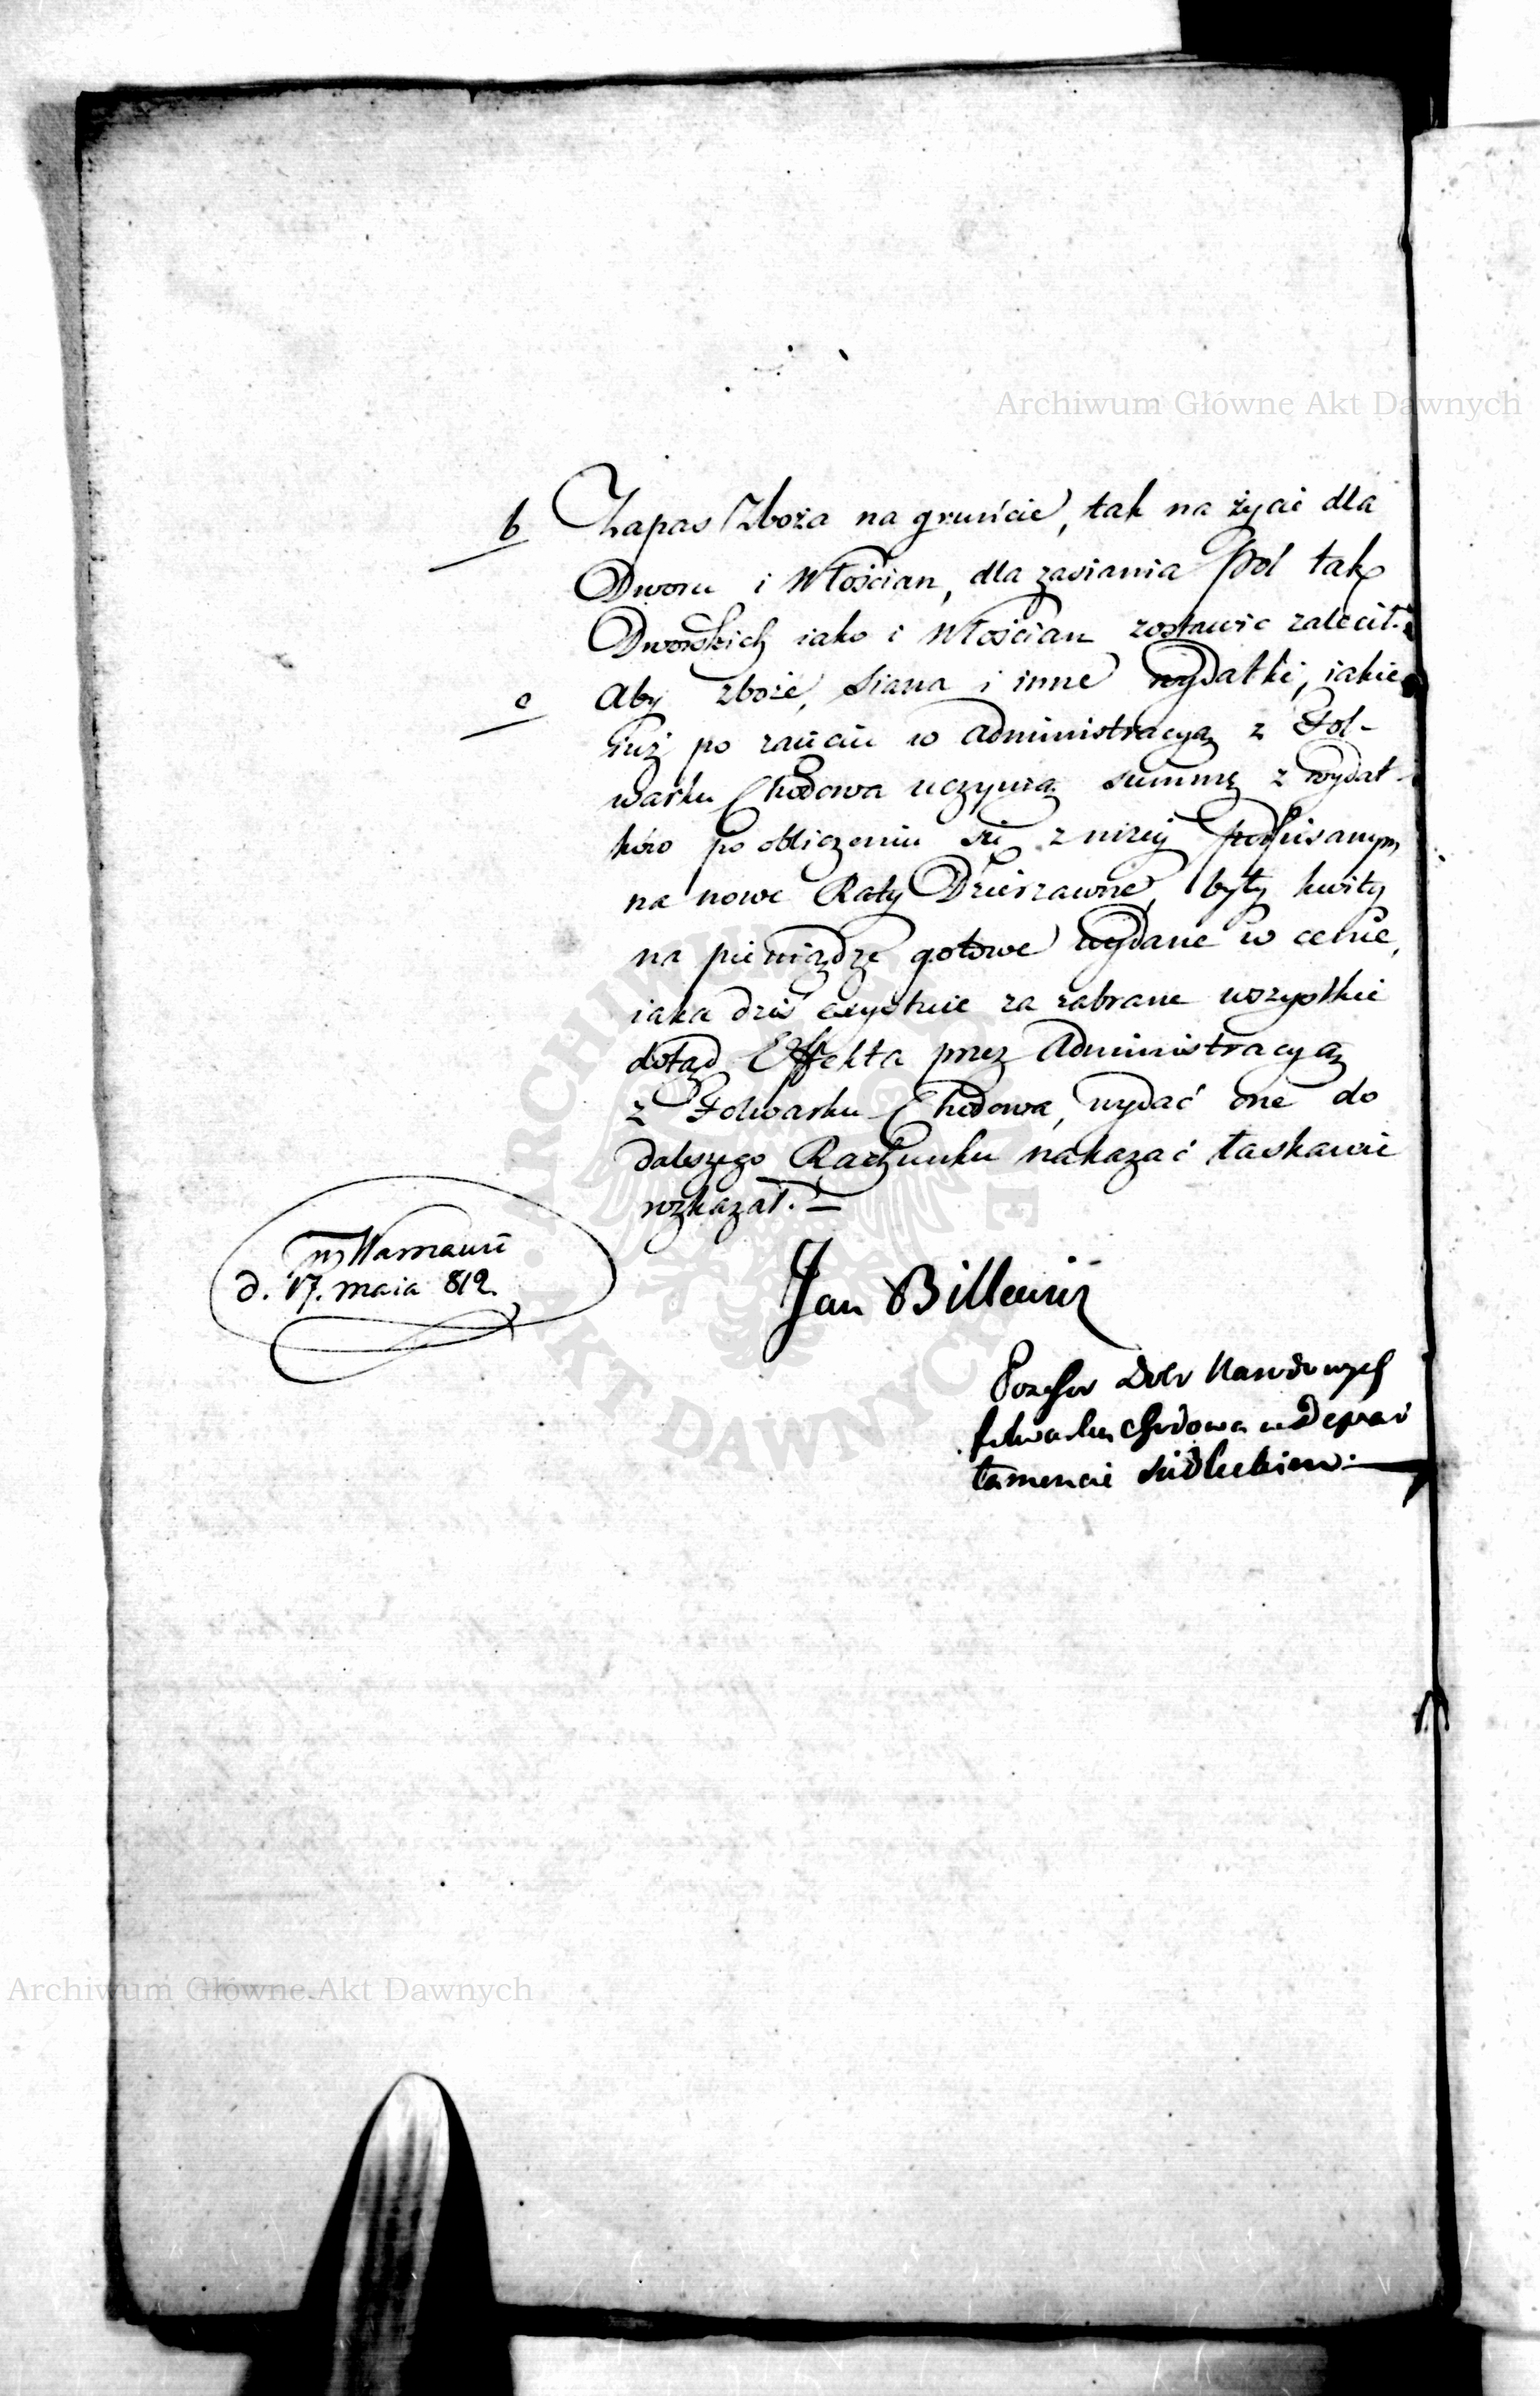 b Zapas Zboża na gruncie, tak na życie dla
Dworu i Włościan, dla zasiania Pól tak
Dworskich iako i Włościan zostawic zalecił.
c Aby zboże, siana i inne wydatki, iakie
iuż po zaięciu w Administracyą z Fol-
warku Chodowa uczynią summę z wydat-
ków po obliczeniu się z niżej podpisanym
na nowe Raty Dzierzawne, były kwity
na pieniądze gotowe wydane w cenie,
iaka dziś exystuie za zabrane wszystkie
dotąd Effekta przez Administracyą
z Folwarku Chodowa, wydać one do
dalszego Rachunku nakazać łaskawie
rozkazał. =
w Warszawie
d. 17. maia 812.
Jan Billewicz
Possesor Dobr Narodowych
folwarku Chodowa w Depar
tamencie Siedleckiem.
Archiwum Główne Akt Dawnych
Archiwum Główne Akt Dawnych
ARCHIWUM GŁÓWNE AKT DAWNYCH